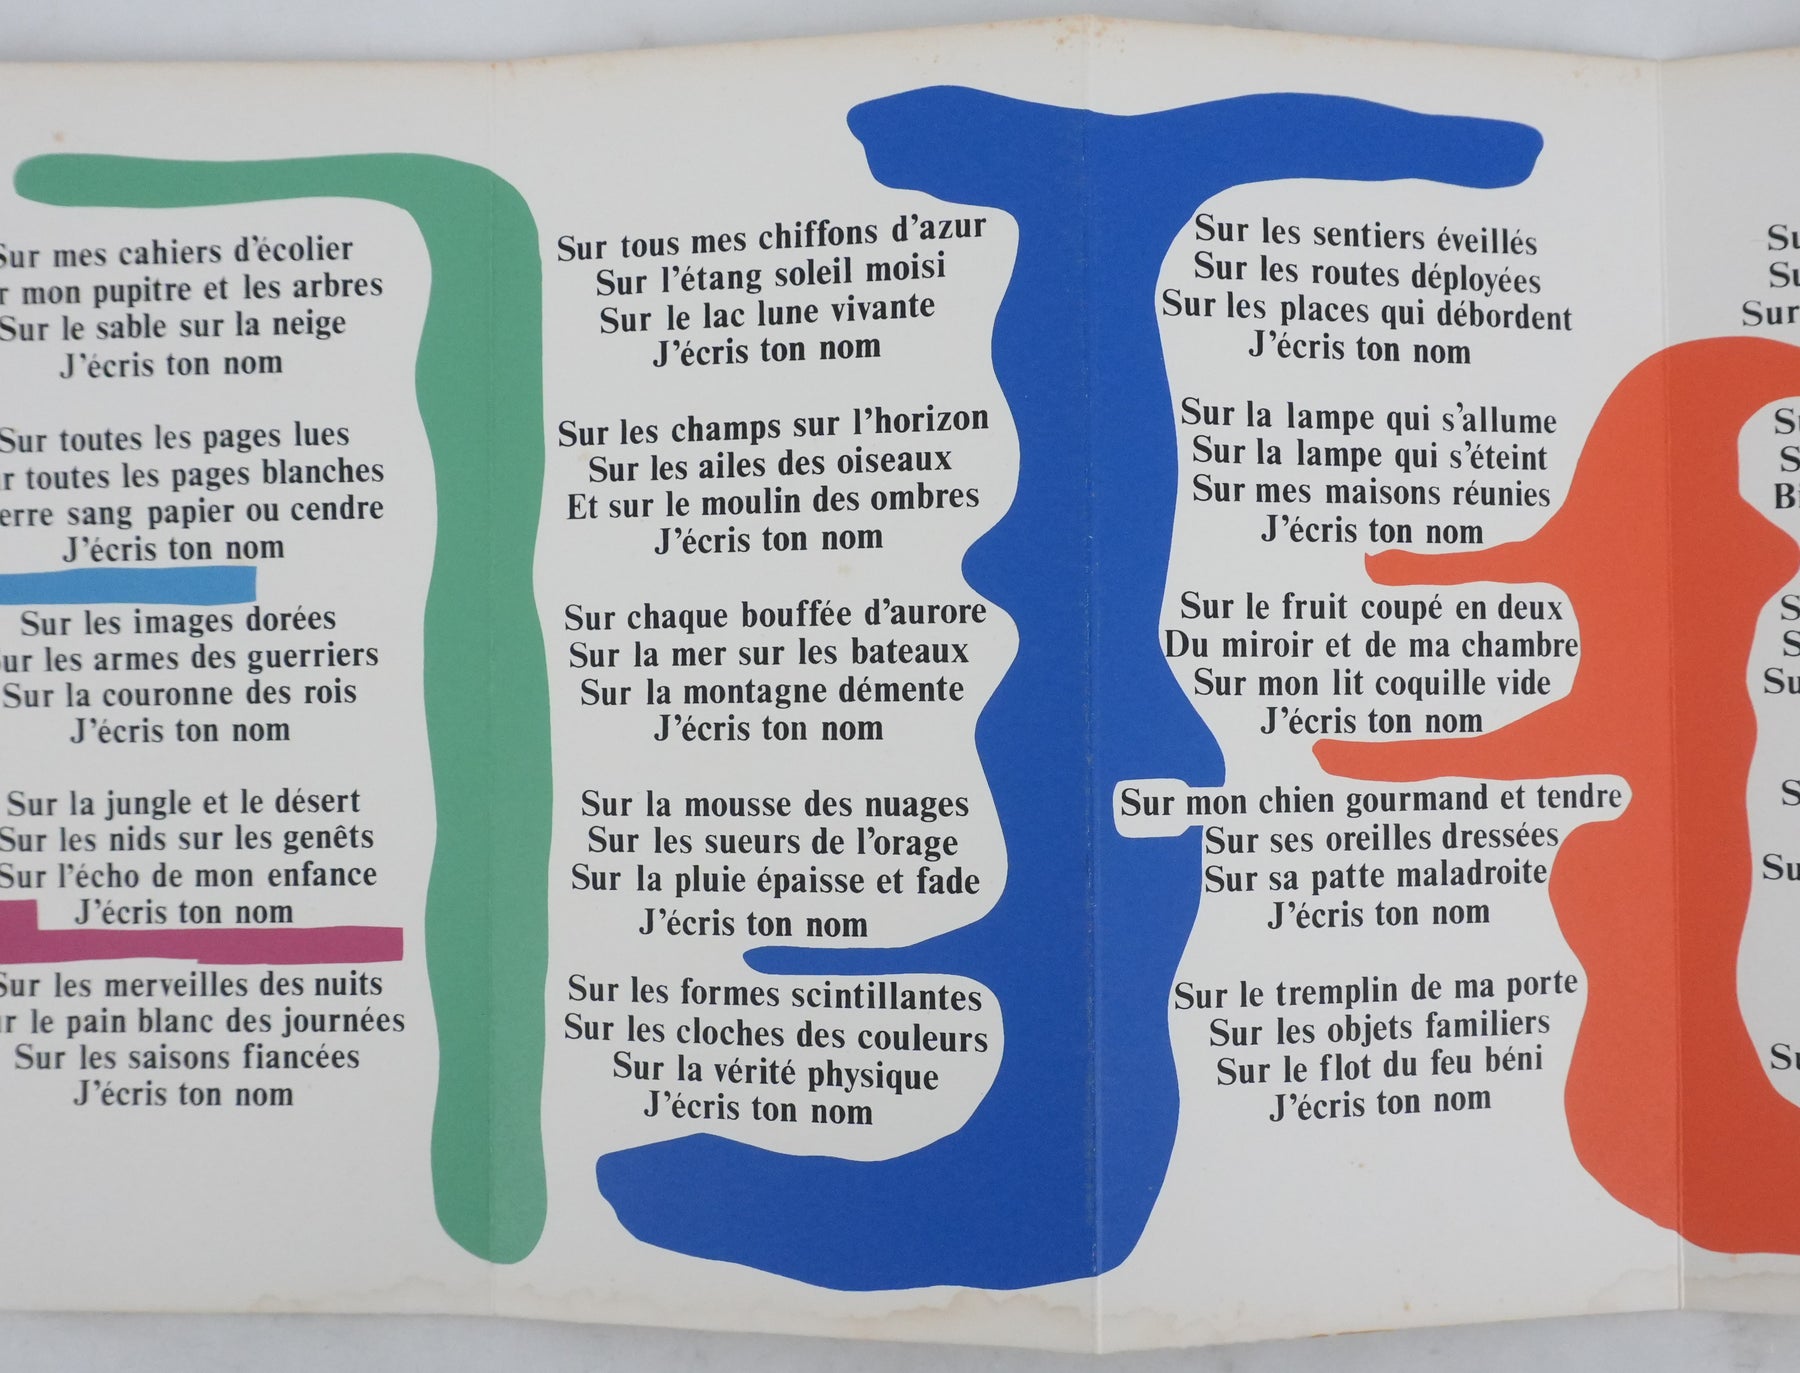 Sur mes cahiers d'écolier
mon pupitre et les arbres
Sur le sable sur la neige
J'écris ton nom
Sur toutes les pages lues
toutes les pages blanches
sang papier ou cendre
J'écris ton nom
Sur les images dorées
les armes des guerriers
Sur la couronne des rois
J'écris ton nom
Sur la jungle et le désert
Sur les nids sur les genêts
Sur l'écho de mon enfance
J'écris ton nom
Sur les merveilles des nuits
le pain blanc des journées
Sur les saisons fiancées
J'écris ton nom
Sur tous mes chiffons d'azur
Sur l'étang soleil moisi
Sur le lac lune vivante
J'écris ton nom
Sur les champs sur l'horizon
Sur les ailes des oiseaux
Et sur le moulin des ombres
J'écris ton nom
Sur chaque bouffée d'aurore
Sur la mer sur les bateaux
Sur la montagne démente
J'écris ton nom
Sur la mousse des nuages
Sur les sueurs de l'orage
Sur la pluie épaisse et fade
J'écris ton nom
Sur les formes scintillantes
Sur les cloches des couleurs
Sur la vérité physique
J'écris ton nom
Sur les sentiers éveillés
Sur les routes déployées
Sur les places qui débordent
J'écris ton nom
Sur la lampe qui s'allume
Sur la lampe qui s'éteint
Sur mes maisons réunies
J'écris ton nom
Sur le fruit coupé en deux
Du miroir et de ma chambre
Sur mon lit coquille vide
J'écris ton nom
Sur mon chien gourmand et tendre
Sur ses oreilles dressées
Sur sa patte maladroite
J'écris ton nom
Sur le tremplin de ma porte
Sur les objets familiers
Sur le flot du feu béni
J'écris ton nom
Sur